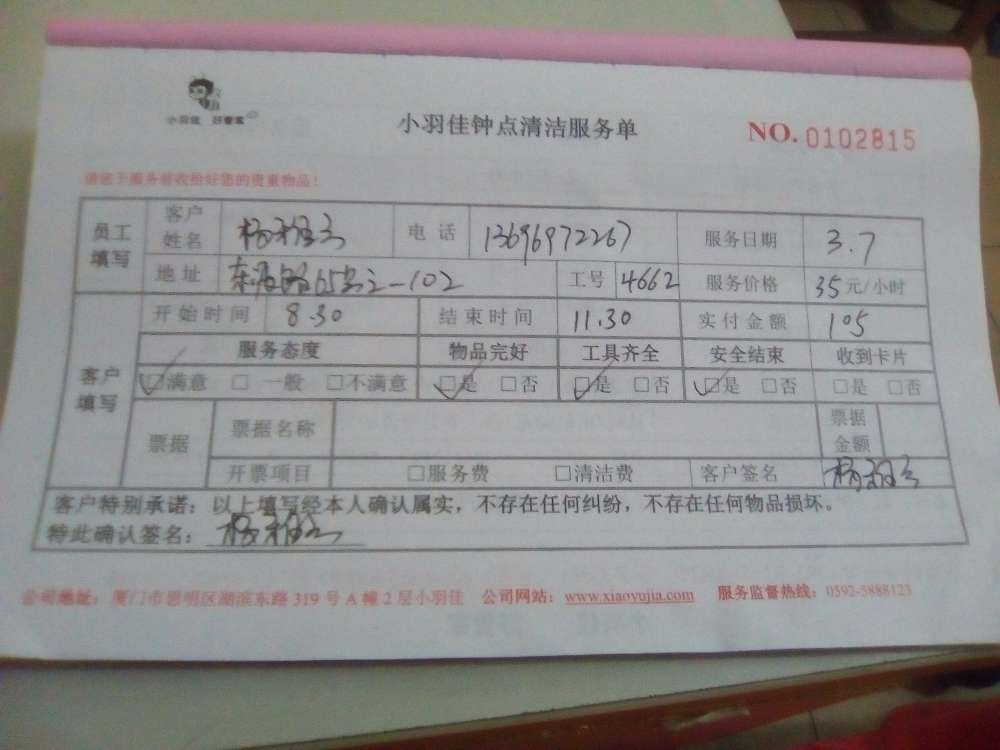 小羽佳 好管家
小羽佳钟点清洁服务单
NO. 0102815
请您于服务前收拾好您的贵重物品！
员工填写 客户姓名 电话 13696972267 服务日期 3.7
地址 65号之一102 工号 4662 服务价格 35元/小时
客户填写 开始时间 8.30 结束时间 11.30 实付金额 105
服务态度 物品完好 工具齐全 安全结束 收到卡片
☑满意 □一般 □不满意 ☑是 □否 ☑是 □否 ☑是 □否 □是 □否
票据 票据名称 票据金额
开票项目 □服务费 □清洁费 客户签名
客户特别承诺：以上填写经本人确认属实，不存在任何纠纷，不存在任何物品损坏。
特此确认签名：
公司地址：厦门市思明区湖滨东路319号A幢2层小羽佳 公司网站：www.xiaoyujia.com 服务监督热线：0592-5888123